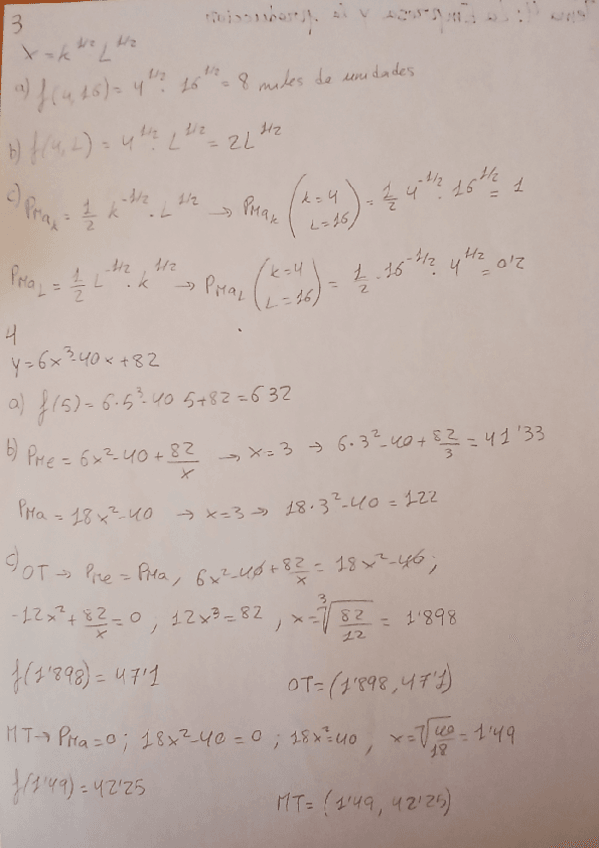 3
x = k^1/2 L^1/2
a) f(4,16) = 4^1/2 · 16^1/2 = 8 miles de unidades
b) f(4,L) = 4^1/2 · L^1/2 = 2L^1/2
c) PMa_k = 1/2 k^-1/2 · L^1/2 → PMa_k (k=4 L=16) = 1/2 4^-1/2 · 16^1/2 = 1
PMa_L = 1/2 L^-1/2 · k^1/2 → PMa_L (k=4 L=16) = 1/2 · 16^-1/2 · 4^1/2 =
4
y = 6x^3 - 40x + 82
a) f(5) = 6·5^3 - 40 5 + 82 = 632
b) PMe = 6x^2 - 40 + 82/x → x = 3 → 6·3^2 - 40 + 82/3 = 41'33
PMa = 18x^2 - 40 → x = 3 → 18·3^2 - 40 = 122
c) OT → PMe = PMa, 6x^2 - 40 + 82/x = 18x^2 - 40;
-12x^2 + 82/x = 0, 12x^3 = 82, x = ∛(82/12) = 1'898
f(1'898) = 47'1 OT = (1'898, 47'1)
MT → PMa = 0; 18x^2 - 40 = 0; 18x^2 = 40, x = √(40/18) = 1'49
f(1'49) = 42'25 MT = (1'49, 42'25)